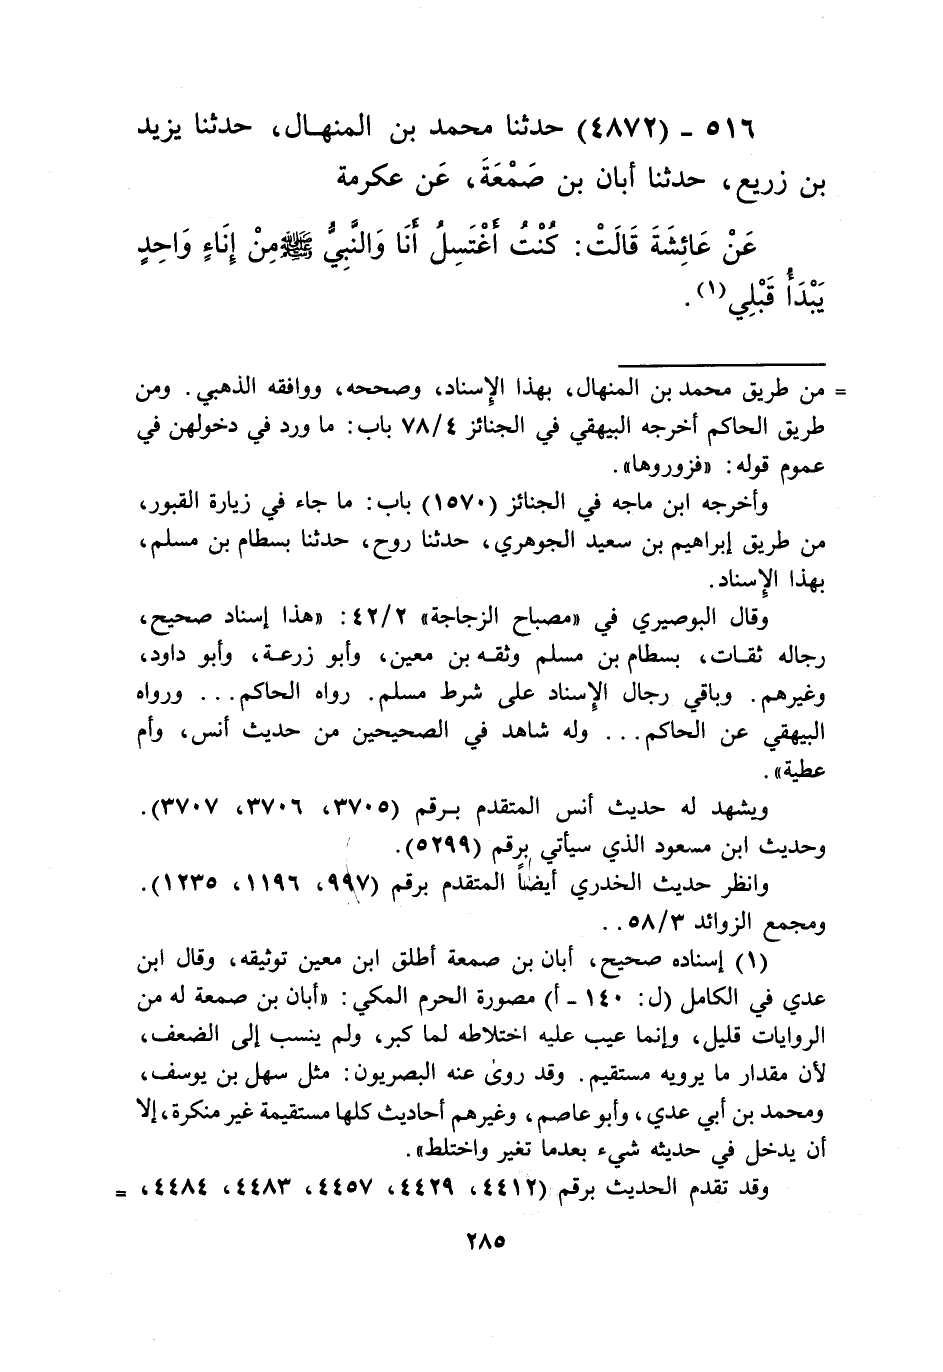 ٥١٦ - (٤٨٧٢) حدثنا محمد بن المنهـال، حدثنا يزيد
بن زريع، حدثنا أبان بن صَمْعَةَ، عَن عكرمة
عَنْ عَائِشَةَ قَالَتْ: كُنْتُ أَغْتَسِلُ أَنَا وَالنَّبِيُّ ﷺ مِنْ إِنَاءٍ وَاحِدٍ
يَبْدَأُ قَبْلِي(١).
= من طريق محمد بن المنهال، بهذا الإسناد، وصححه، ووافقه الذهبي. ومن
طريق الحاكم أخرجه البيهقي في الجنائز ٧٨/٤ باب: ما ورد في دخولهن في
عموم قوله: «فزوروها».
وأخرجه ابن ماجه في الجنائز (١٥٧٠) باب: ما جاء في زيارة القبور،
من طريق إبراهيم بن سعيد الجوهري، حدثنا روح، حدثنا بسطام بن مسلم،
بهذا الإسناد.
وقال البوصيري في «مصباح الزجاجة» ٤٢/٢: «هذا إسناد صحيح،
رجاله ثقـات، بسطام بن مسلم وثقـه بن معين، وأبو زرعـة، وأبو داود،
وغيرهم. وباقي رجال الإسناد على شرط مسلم. رواه الحاكم... ورواه
البيهقي عن الحاكم... وله شاهد في الصحيحين من حديث أنس، وأم
عطية».
ويشهد له حديث أنس المتقدم بـرقم (٣٧٠٥، ٣٧٠٦، ٣٧٠٧).
وحديث ابن مسعود الذي سيأتي برقم (٥٢٩٩).
وانظر حديث الخدري أيضاً المتقدم برقم (٩٩٧، ١١٩٦، ١٢٣٥).
ومجمع الزوائد ٥٨/٣..
(١) إسناده صحيح، أبان بن صمعة أطلق ابن معين توثيقه، وقال ابن
عدي في الكامل (ل: ١٤٠ - أ) مصورة الحرم المكي: «أبان بن صمعة له من
الروايات قليل، وإنما عيب عليه اختلاطه لما كبر، ولم ينسب إلى الضعف،
لأن مقدار ما يرويه مستقيم. وقد روىٰ عنه البصريون: مثل سهل بن يوسف،
ومحمد بن أبي عدي، وأبو عاصم، وغيرهم أحاديث كلها مستقيمة غير منكرة، إلا
أن يدخل في حديثه شيء بعدما تغير واختلط».
وقد تقدم الحديث برقم (٤٤١٢، ٤٤٢٩، ٤٤٥٧، ٤٤٨٣، ٤٤٨٤، =
٢٨٥